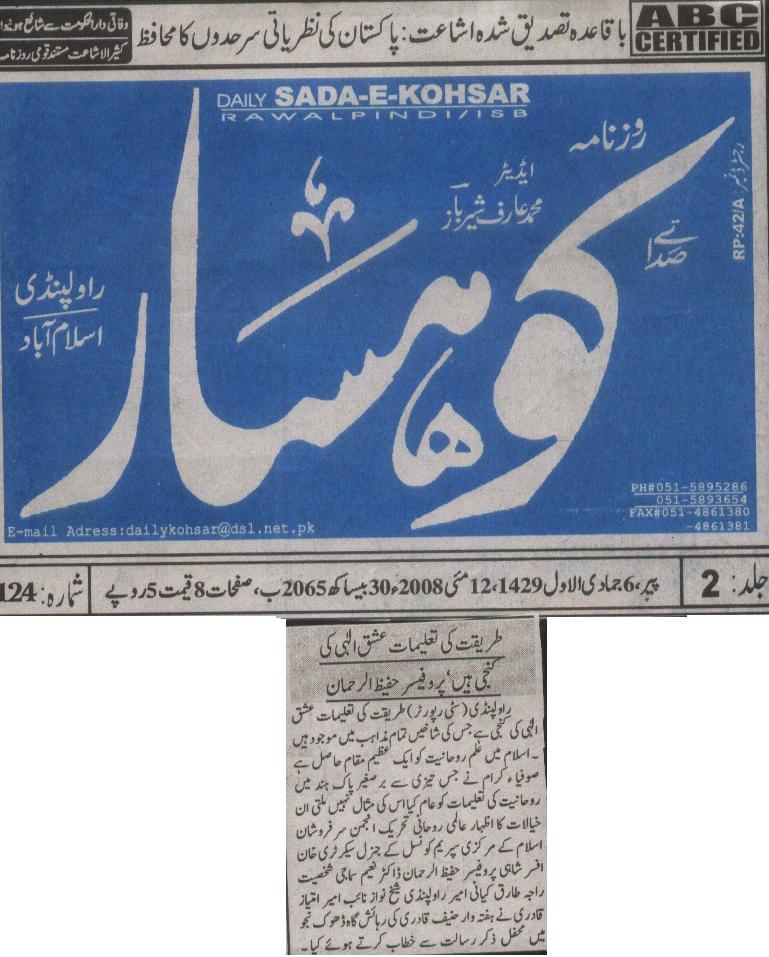 ABC
CERTIFIED
باقاعدہ تصدیق شدہ اشاعت: پاکستان کی نظریاتی سرحدوں کا محافظ
وفاقی دارالحکومت سے شائع ہونیوا
کثیر الاشاعت مستند قومی روزنامہ
DAILY SADA-E-KOHSAR
RAWALPINDI/ISB
روزنامہ
ایڈیٹر
محمد عارف شیرباز
صدائے
کوہسار
راولپنڈی
اسلام آباد
رجسٹرڈ نمبر: RP:42/A
PH#051-5895286
051-5893654
FAX#051-4861380
-4861381
E-mail Adress:dailykohsar@dsl.net.pk
جلد: 2
پیر، 6 جمادی الاول 1429، 12 مئی 2008ء 30 بیساکھ 2065 ب، صفحات 8 قیمت 5 روپے
شمارہ: 124
طریقت کی تعلیمات عشق الٰہی کی
کنجی ہیں، پروفیسر حفیظ الرحمان
راولپنڈی (سٹی رپورٹر) طریقت کی تعلیمات عشق
الٰہی کی کنجی ہے جس کی شاخیں تمام مذاہب میں موجود ہیں
۔ اسلام میں علم روحانیت کو ایک عظیم مقام حاصل ہے
صوفیاء کرام نے جس تیزی سے برصغیر پاک ہند میں
روحانیت کی تعلیمات کو عام کیا اس کی مثال نہیں ملتی ان
خیالات کا اظہار عالمی روحانی تحریک انجمن سرفروشان
اسلام کے مرکزی سپریم کونسل کے جنرل سیکرٹری خان
افسر شاہی پروفیسر حفیظ الرحمان ڈاکٹر نعیم سماجی شخصیت
راجہ طارق کیانی امیر راولپنڈی شیخ نواز نائب امیر امتیاز
قادری نے ہفتہ وار حنیف قادری کی رہائش گاہ ڈھوک نجو
میں محفل ذکر رسالت سے خطاب کرتے ہوئے کیا۔